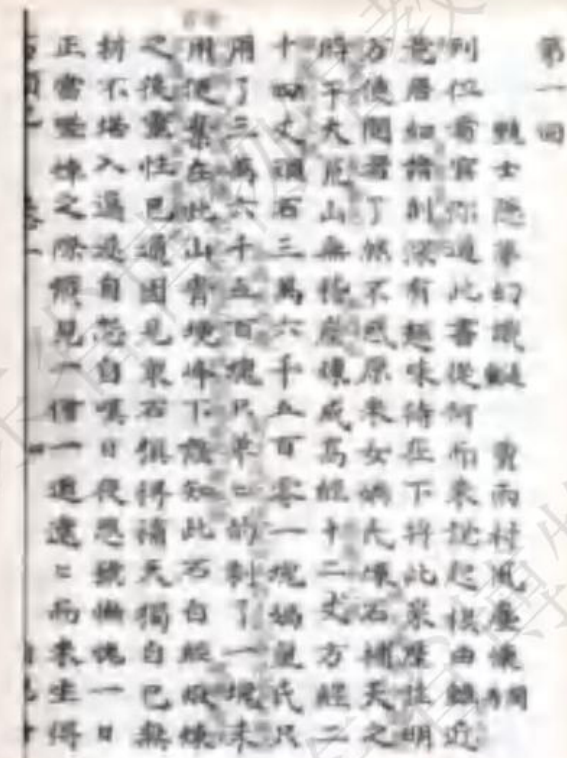 第一回
甄士隱夢幻識通靈　賈雨村風塵懷閨秀
列位看官你道此書從何而來說起根由雖近
荒唐細諳則深有趣味待在下將此來歷註明
方使閱者了然不惑原來女媧氏煉石補天之
時于大荒山無稽崖煉成高經十二丈方經二
十四丈頑石三萬六千五百零一塊媧皇氏只
用了三萬六千五百塊只單二的剩了一塊未
用便棄在此山青埂峰下誰知此石自經煅煉
之後靈性已通因見衆石俱得補天獨自己無
材不堪入選遂自怨自嘆日夜悲號慚愧一日
正當嗟悼之際俄見一僧一道遠二而來生得